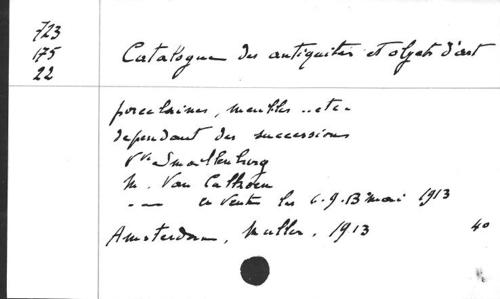 723
175
22
Catalogue des antiquités et objets d'art
porcelaines, meubles .. etc.
dependant des successions
Vve Smallenburg
M. Van
La vente les 6.9.13 mai 1913
Amsterdam, Muller, 1913
40